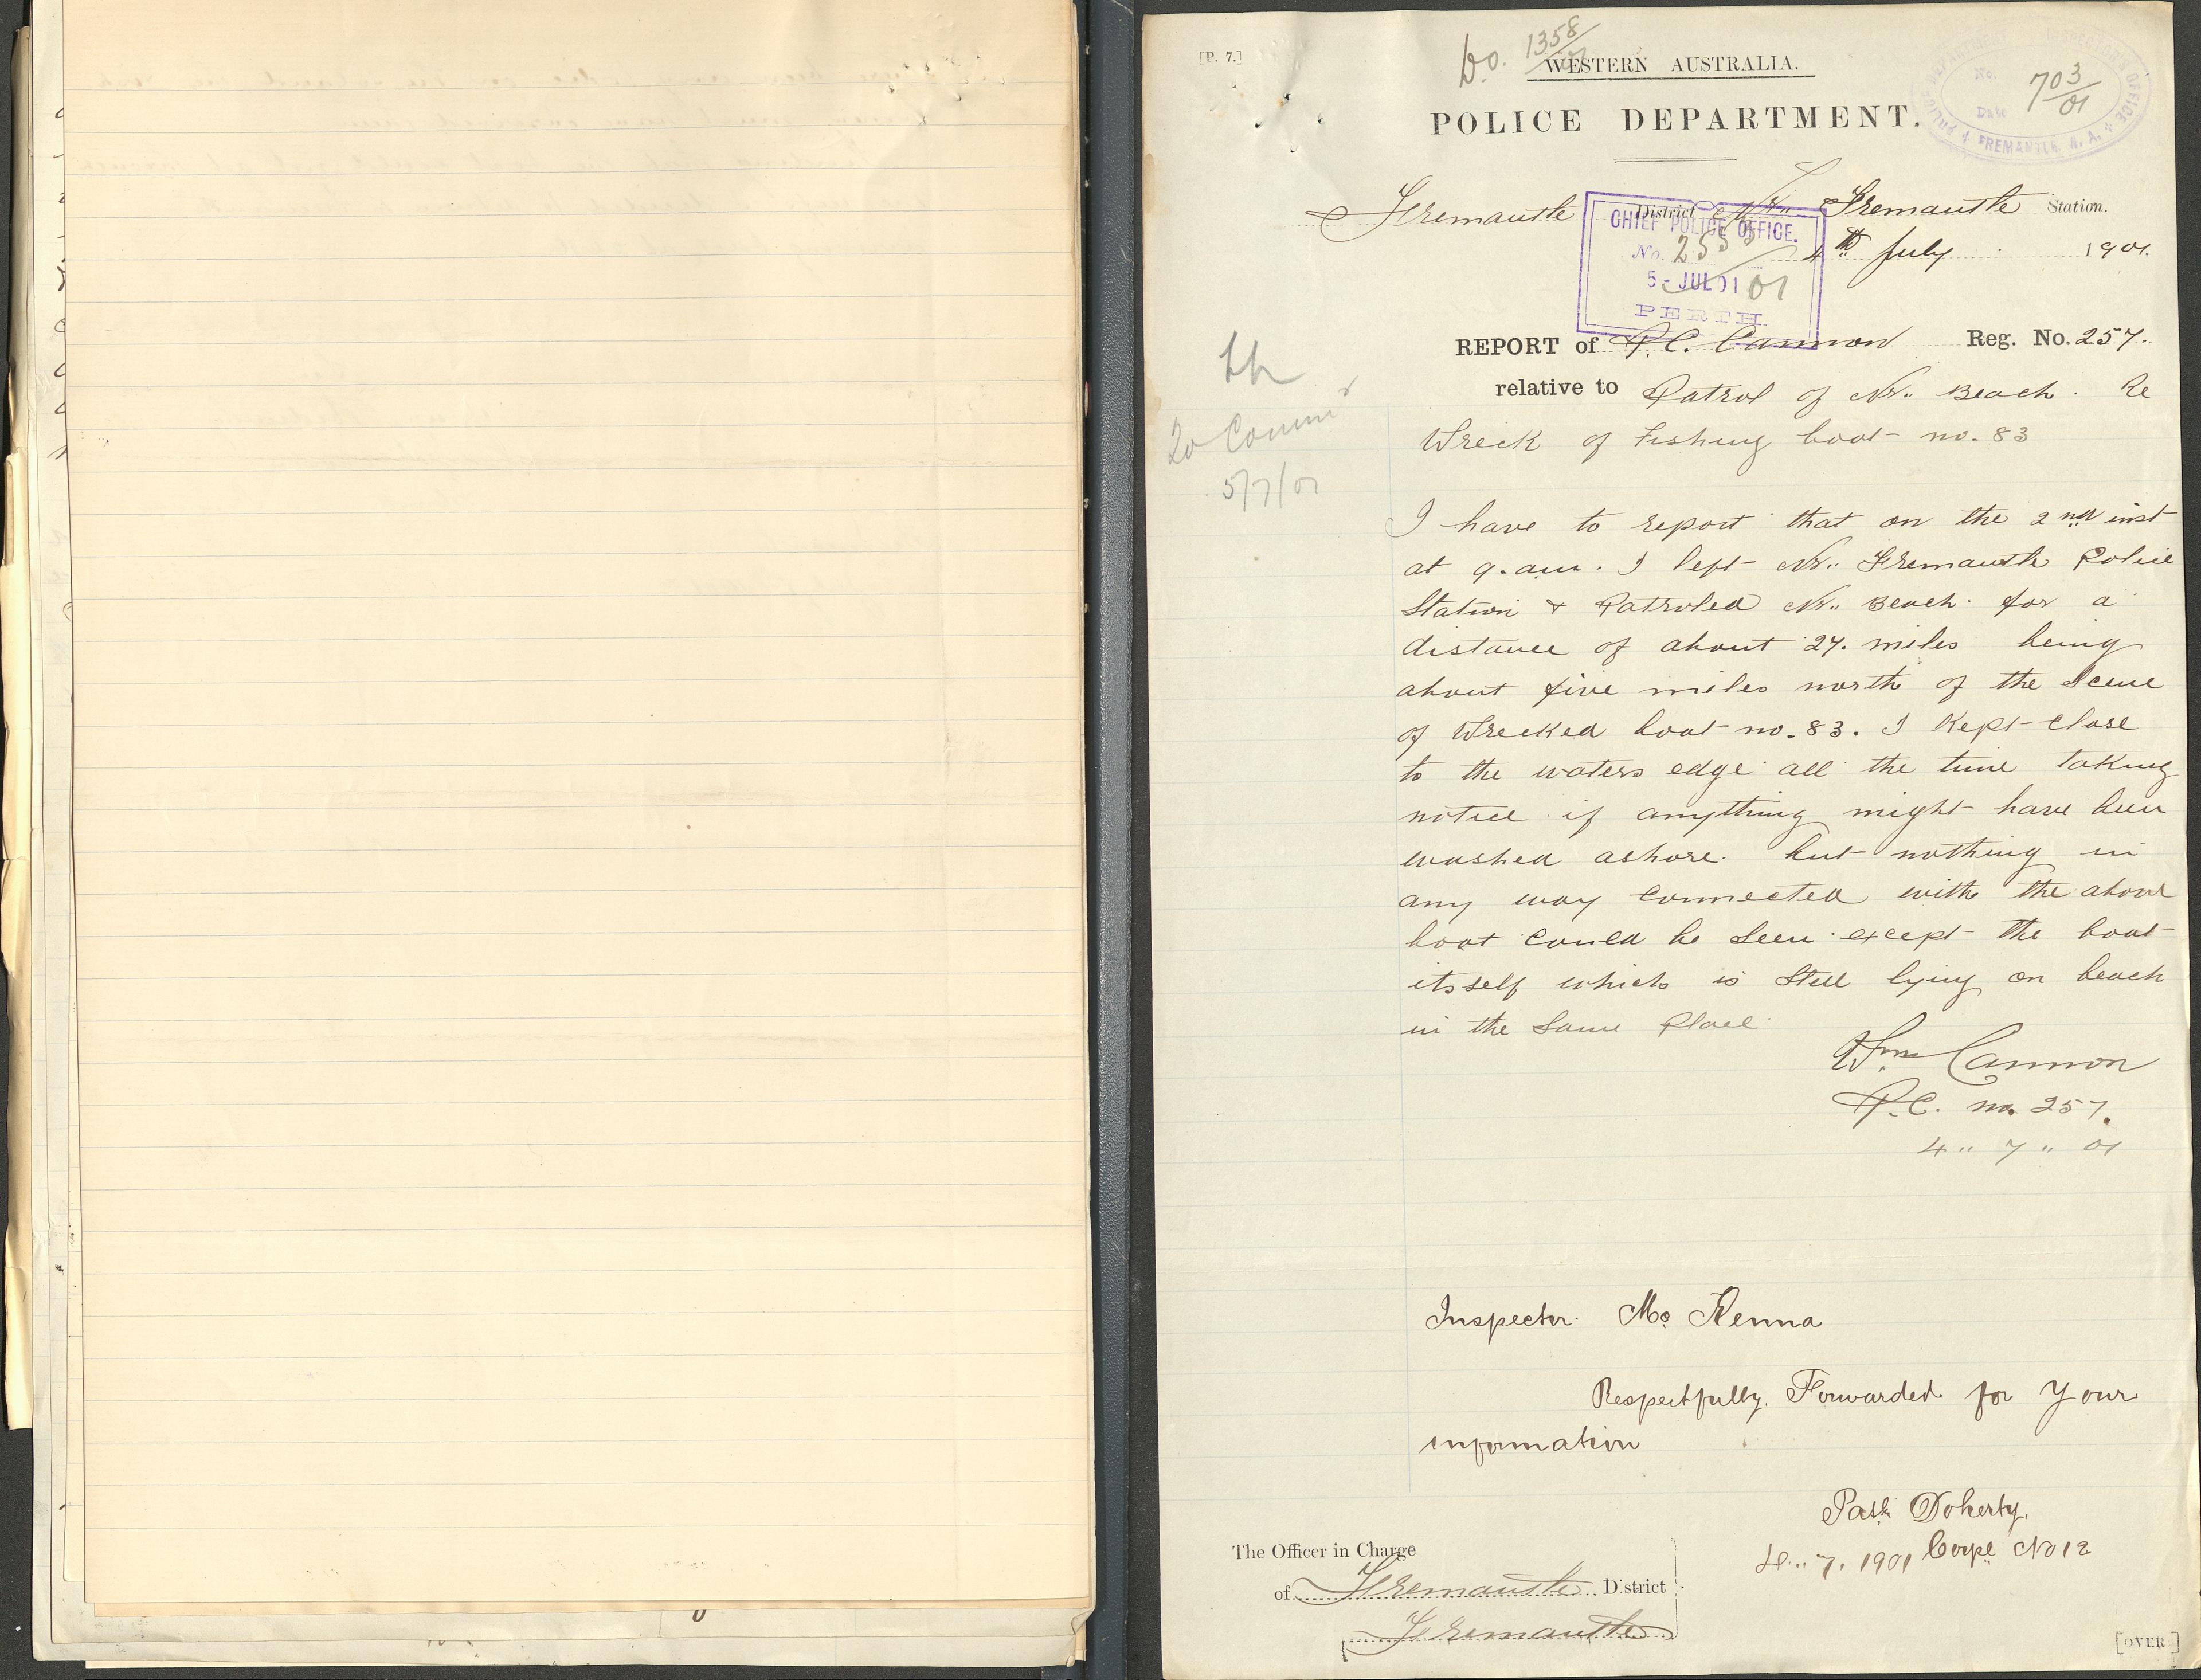 [P. 7.]
Do. 1358/01
WESTERN AUSTRALIA.
POLICE DEPARTMENT.
POLICE DEPARTMENT OFFICE
No. 703/01
Date
FREMANTLE, W. A.
Fremantle District Nr.. Fremantle Station.
4th July 1901.
CHIEF POLICE OFFICE.
No. 2553/01
5 - JUL 01
PERTH
REPORT of P.C. Cannon Reg. No. 257.
relative to Patrol of Nr.. Beach. Re
Wreck of Fishing boat no. 83
To Commr
5/7/01
I have to report that on the 2nd inst
at 9.am. I left Nr.. Fremantle Police
Station & Patroled Nr.. Beach for a
distance of about 27. miles being
about five miles north of the Scene
of Wrecked boat no. 83. I Kept Close
to the waters edge all the time taking
notice if anything might have been
washed ashore. but nothing in
any way Connected with the above
boat Could be Seen except the boat
itsself which is Still lying on beach
in the Same Place
Wm Cannon
P.C. no. 257.
4 .. 7 .. 01
Inspector Mc Kenna
Respectfully. Forwarded for Your
information
Patk Doherty.
Corpl No 12
4 .. 7. 1901
The Officer in Charge
of Fremantle District
Fremantle
[OVER.]